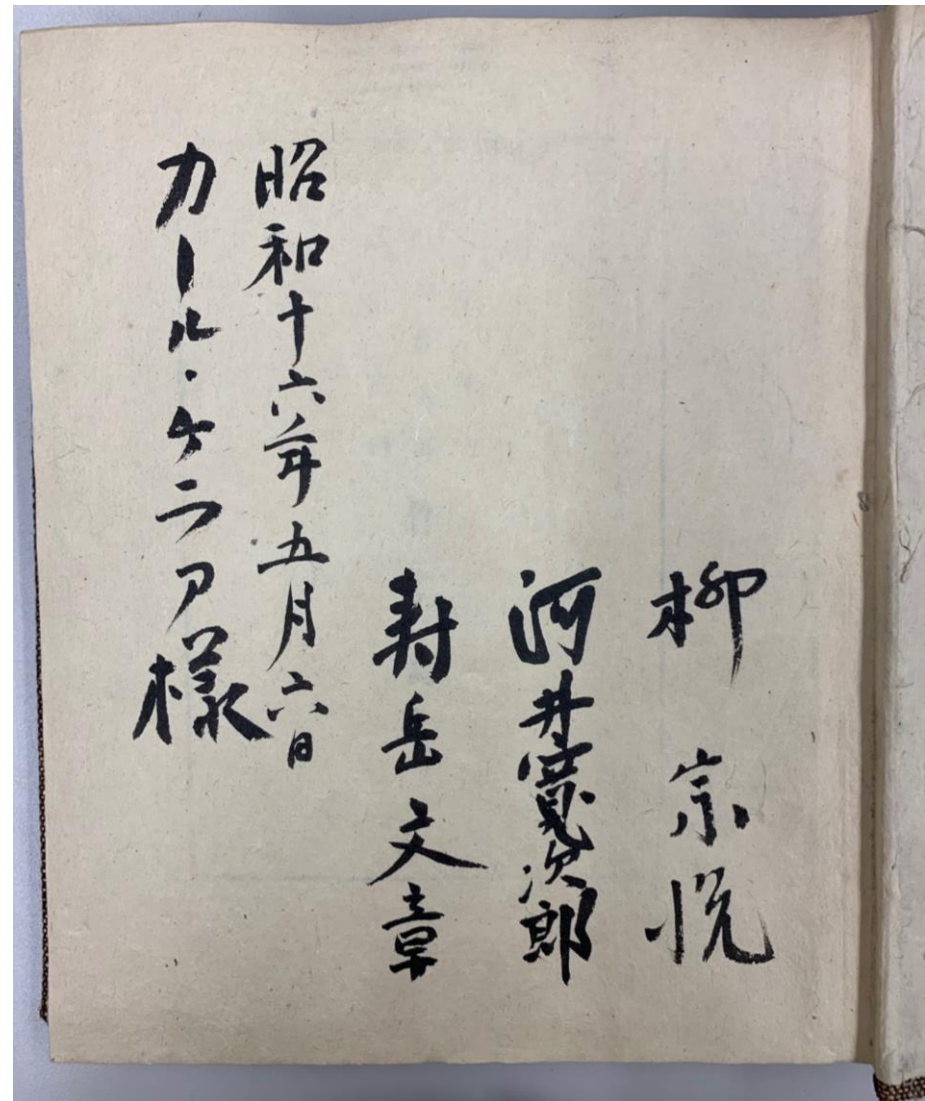 柳宗悦
河井寛次郎
寿岳文章
昭和十六年五月六日
カール・ケラア様